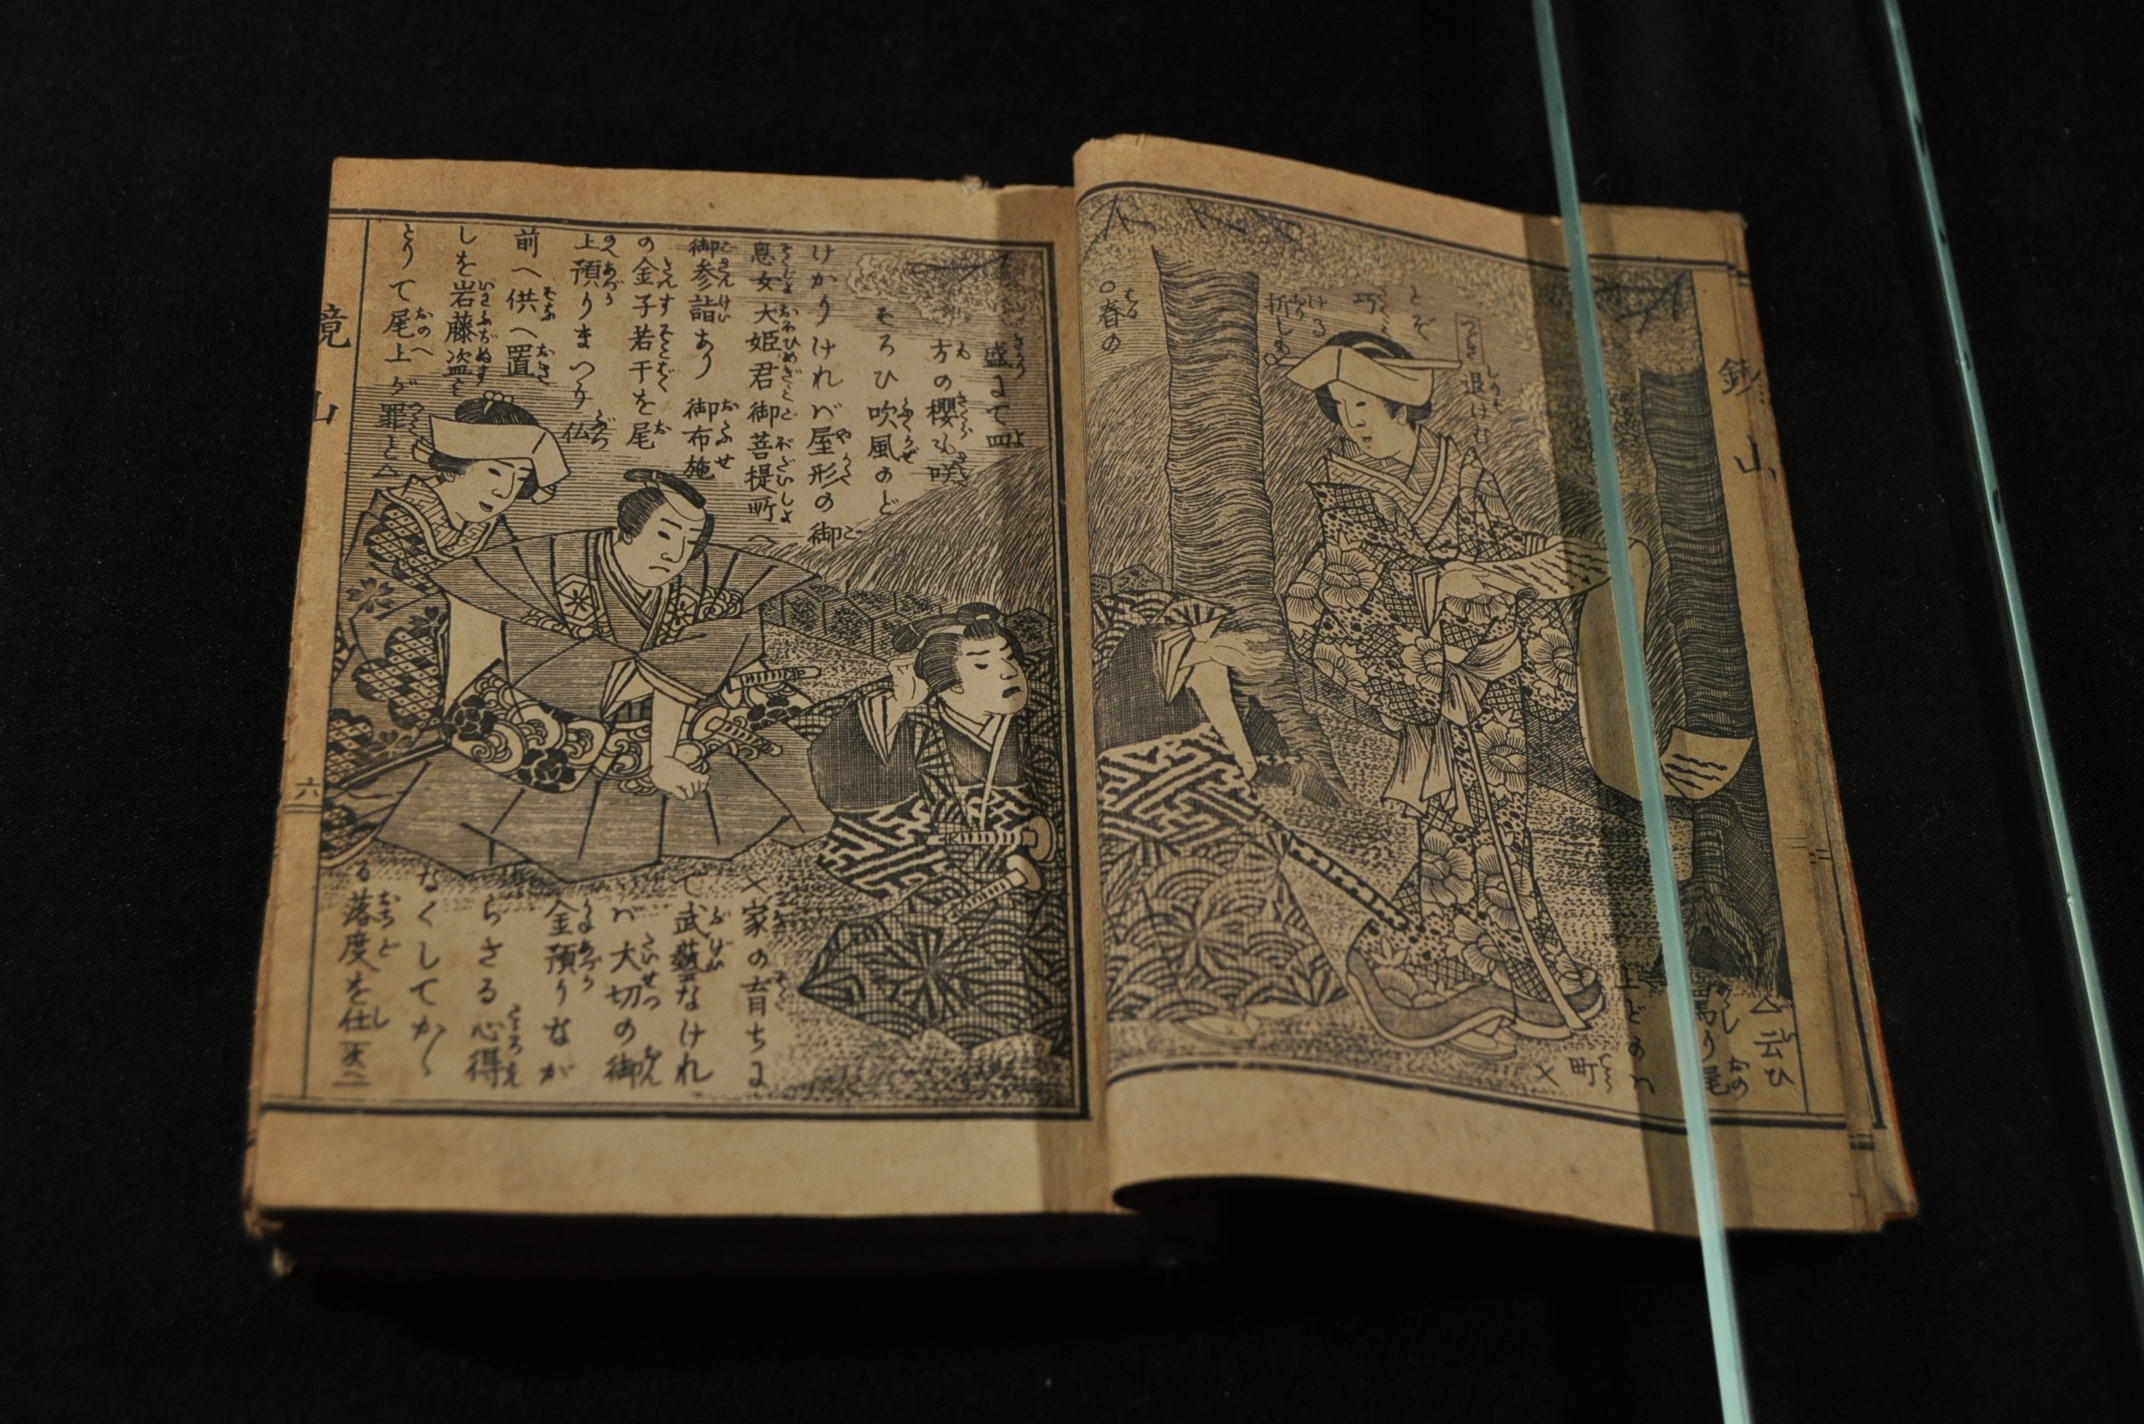 鏡山
退け
とぞ
巧
ける
折しも
○春の
△云ひ
罵り尾
上どのハ
町
×
盛まて四
方の櫻も咲
そろひ吹風のど
けかりけれバ屋形の御
息女大姫君御菩提所へ
御参詣あり 御布施
の金子若干を尾
上預りまつり 仏
前へ供へ置
しを岩藤盗と
りて尾上が罪と△
×家の育ちま
で武藝なけれ
バ大切の御
金預りなが
らさる心得
なくしてかゝ
る落度を仕
鏡山
六